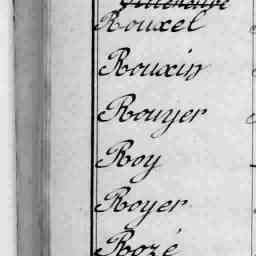 Rouxel
Rouxin
Rouyer
Roy
Royer
Rozé